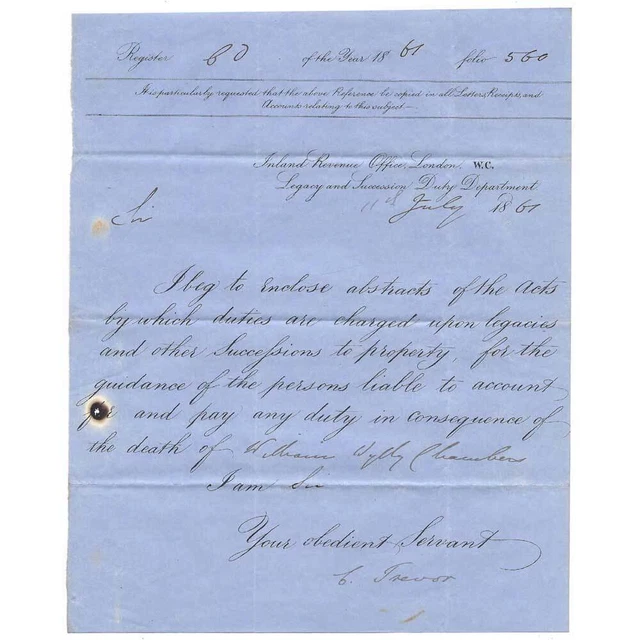 Register 60 of the Year 1861 folio 560
It is particularly requested that the above Reference be copied in all Letters, Receipts, and
Accounts relating to this subject.—
Inland Revenue Office, London, W.C.
Legacy and Succession Duty Department
11th July 1861
Sir
I beg to enclose abstracts of the Acts
by which duties are charged upon legacies
and other Successions to property, for the
guidance of the persons liable to account
for and pay any duty in consequence of
the death of William Wylly Chambers
I am Sir
Your obedient Servant
C. Trevor